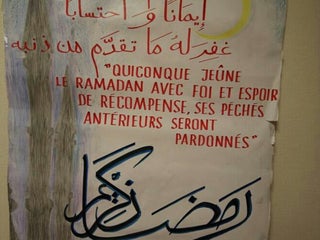 إيمانًا و احتسابًا
غفر له ما تقدّم من ذنبه
"QUICONQUE JEÛNE
LE RAMADAN AVEC FOI ET ESPOIR
DE RÉCOMPENSE, SES PÉCHÉS
ANTÉRIEURS SERONT
PARDONNÉS"
رمضان كريم